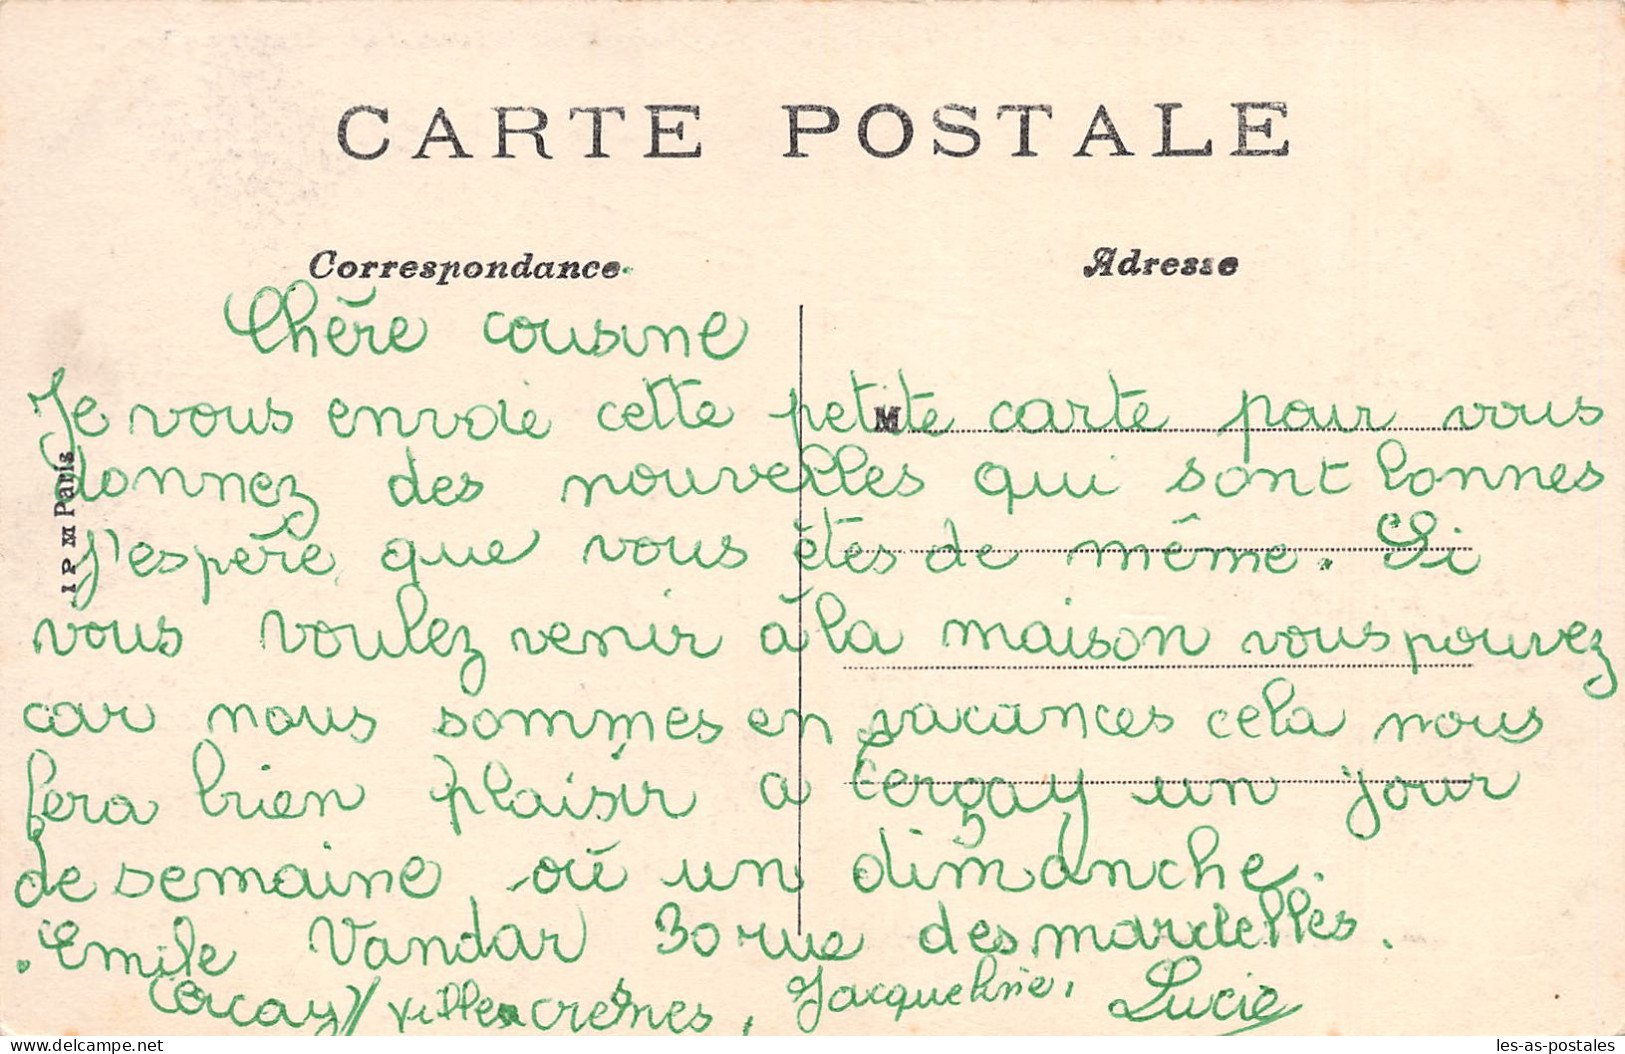 CARTE POSTALE
Correspondance
Adresse
Chère cousine
Je vous envoie cette petite carte pour vous
donnez des nouvelles qui sont bonnes
J'espère que vous êtes de même. Si
vous voulez venir à la maison vous pouvez
car nous sommes en vacances cela nous
fera bien plaisir a Cerçay un jour
de semaine où un dimanche.
Emile Vandar 30 rue des mardelles.
Cerçay / Villecresnes, Jacqueline, Lucie
I P M Paris
M
les-as-postales
delcampe.net
les-as-postales